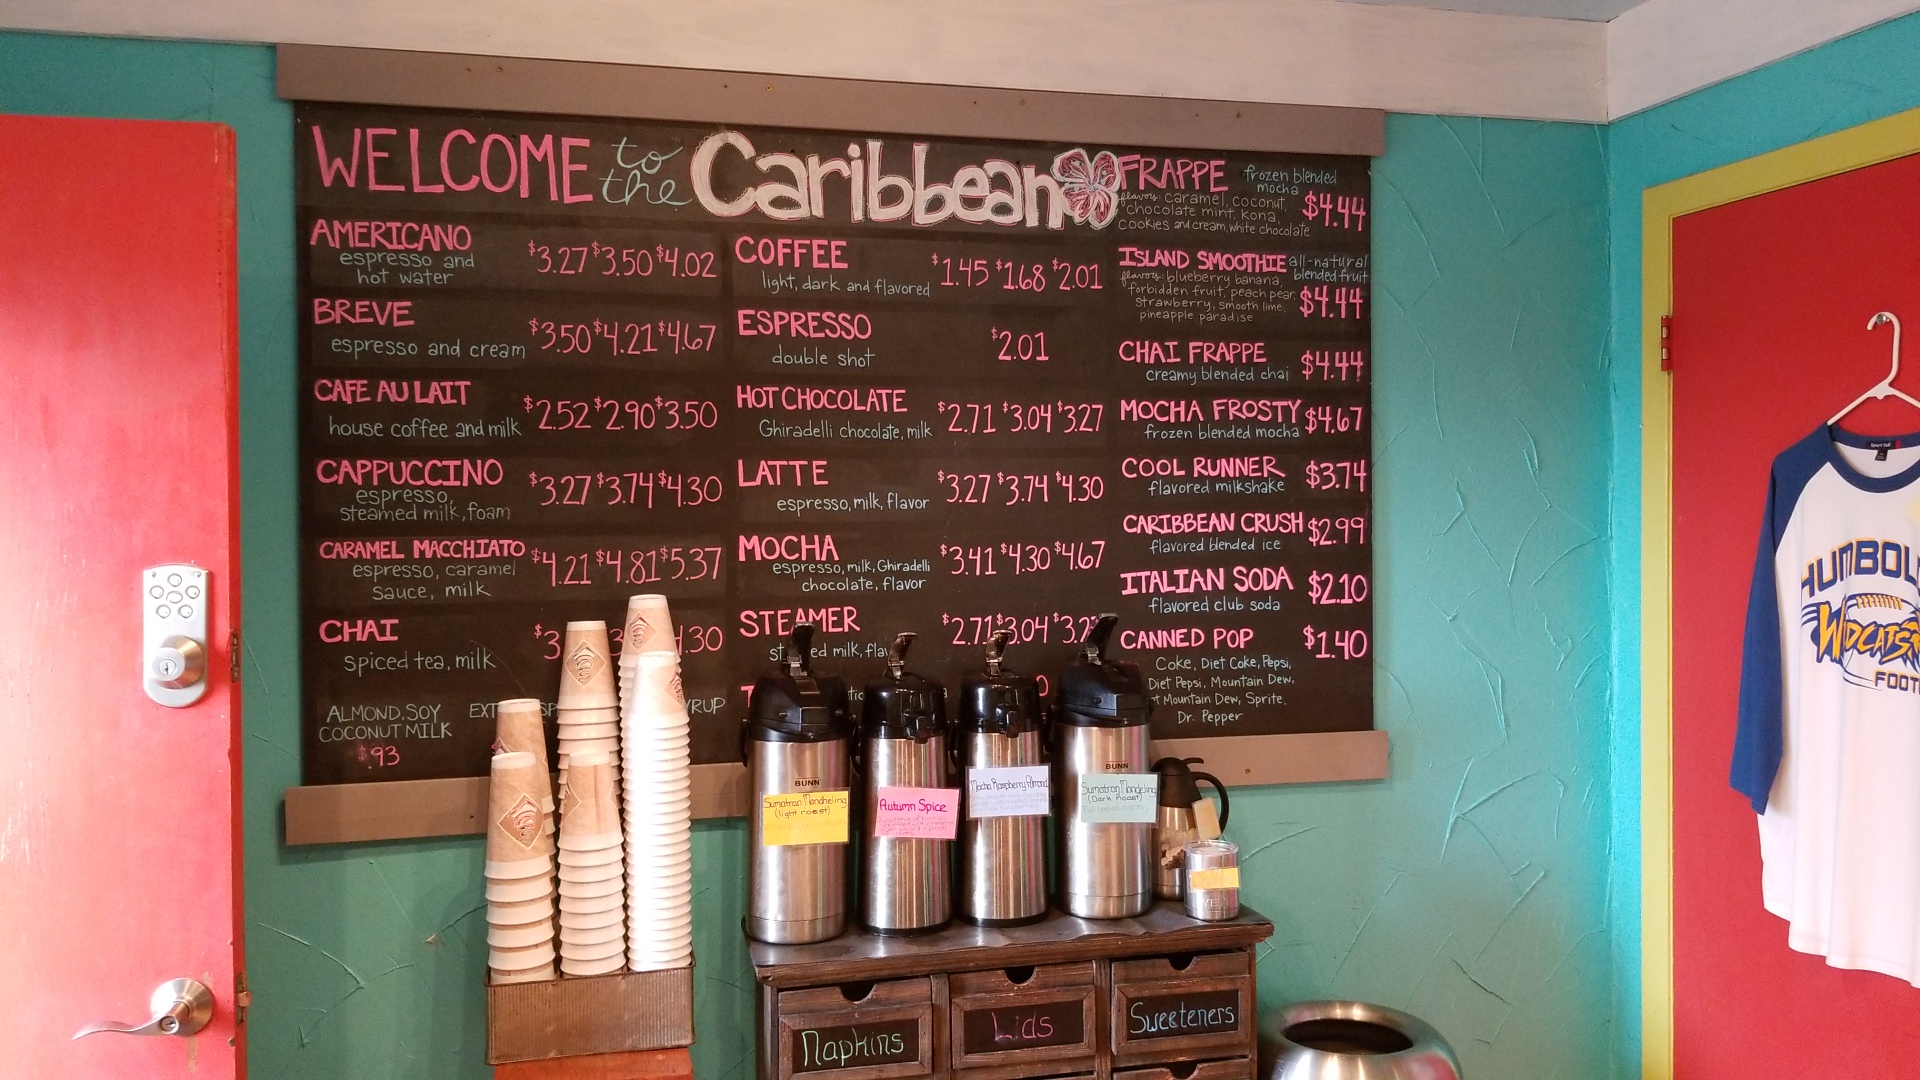 WELCOME to the Caribbean
AMERICANO $3.27 $3.50 $4.02
espresso and
hot water
BREVE $3.50 $4.21 $4.67
espresso and cream
CAFE AU LAIT $2.52 $2.90 $3.50
house coffee and milk
CAPPUCCINO $3.27 $3.74 $4.30
espresso,
steamed milk, foam
CARAMEL MACCHIATO $4.21 $4.81 $5.37
espresso, caramel
sauce, milk
CHAI
spiced tea, milk
ALMOND, SOY
COCONUT MILK
$.93
COFFEE $1.45 $1.68 $2.01
light, dark and flavored
ESPRESSO $2.01
double shot
HOT CHOCOLATE $2.71 $3.04 $3.27
Ghiradelli chocolate, milk
LATTE $3.27 $3.74 $4.30
espresso, milk, flavor
MOCHA $3.41 $4.30 $4.67
espresso, milk, Ghiradelli
chocolate, flavor
STEAMER $2.71 $3.04
milk,
FRAPPE frozen blended
mocha
flavors: caramel, coconut, $4.44
chocolate mint, kona,
cookies and cream, white chocolate
ISLAND SMOOTHIE all-natural
blended fruit
flavors: blueberry banana,
forbidden fruit, peach pear, $4.44
strawberry, smooth lime,
pineapple paradise
CHAI FRAPPE $4.44
creamy blended chai
MOCHA FROSTY $4.67
frozen blended mocha
COOL RUNNER $3.74
flavored milkshake
CARIBBEAN CRUSH $2.99
flavored blended ice
ITALIAN SODA $2.10
flavored club soda
CANNED POP $1.40
Coke, Diet Coke, Pepsi,
Diet Pepsi, Mountain Dew,
Mountain Dew, Sprite,
Dr. Pepper
BUNN
Sumatran Mondheling
(light roast)
Autumn Spice
Mocha Raspberry Almond
BUNN
Sumatran Mondeling
(Dark Roast)
Napkins
Lids
Sweeteners
WILDCATS